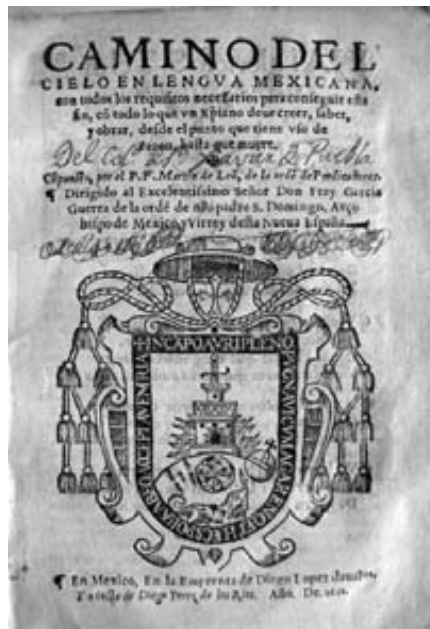 CAMINO DEL
CIELO EN LENGVA MEXICANA,
con todos los requisitos necessarios para conseguir este
fin, cõ todo lo que vn Xpiano deue creer, saber,
y obrar, desde el punto que tiene vso de
razon, hasta que muere.
Del Col. de Sn. Xavier de Puebla
Cõpuesto, por el P. F. Martin de Leõ, de la ordẽ de Predicadores.
¶ Dirigido al Excelentissimo Señor Don Fray Garcia
Guerra de la ordẽ de nño padre S. Domingo, Arço
bispo de Mexico, y Virrey desta Nueua España.
¶ En Mexico, En la Emprenta de Diego Lopez daualos.
Y a costa de Diego Perez de los Rios. Año. De.